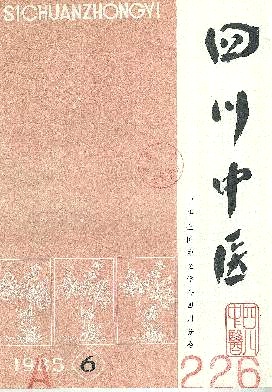 SICHUANZHONGYI
四川中医
四川
中醫
1985 6
A
226